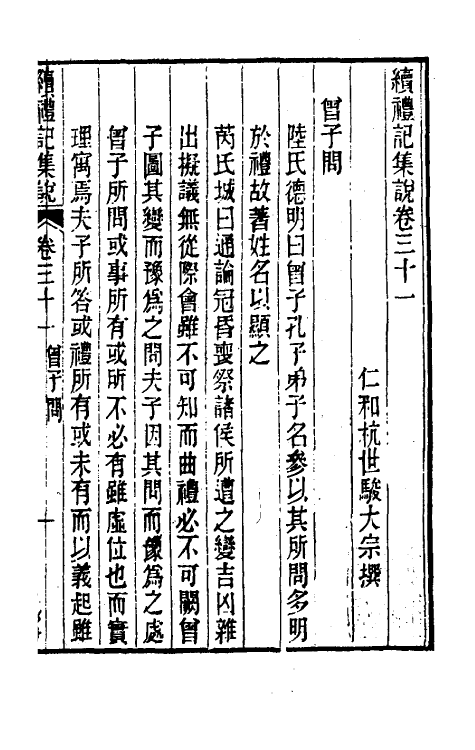 續禮記集說卷三十一
仁和杭世駿大宗撰
曾子問
陸氏德明曰曾子孔子弟子名參以其所問多明
於禮故著姓名以顯之
芮氏城曰通論冠昏喪祭諸侯所遭之變吉凶雜
出擬議無從際會雖不可知而曲禮必不可闕曾
子圖其變而豫爲之問夫子因其問而豫爲之處
曾子所問或事所有或所不必有雖虛位也而實
理寓焉夫子所答或禮所有或未有而以義起雖
續禮記集說 卷三十一 曾子問